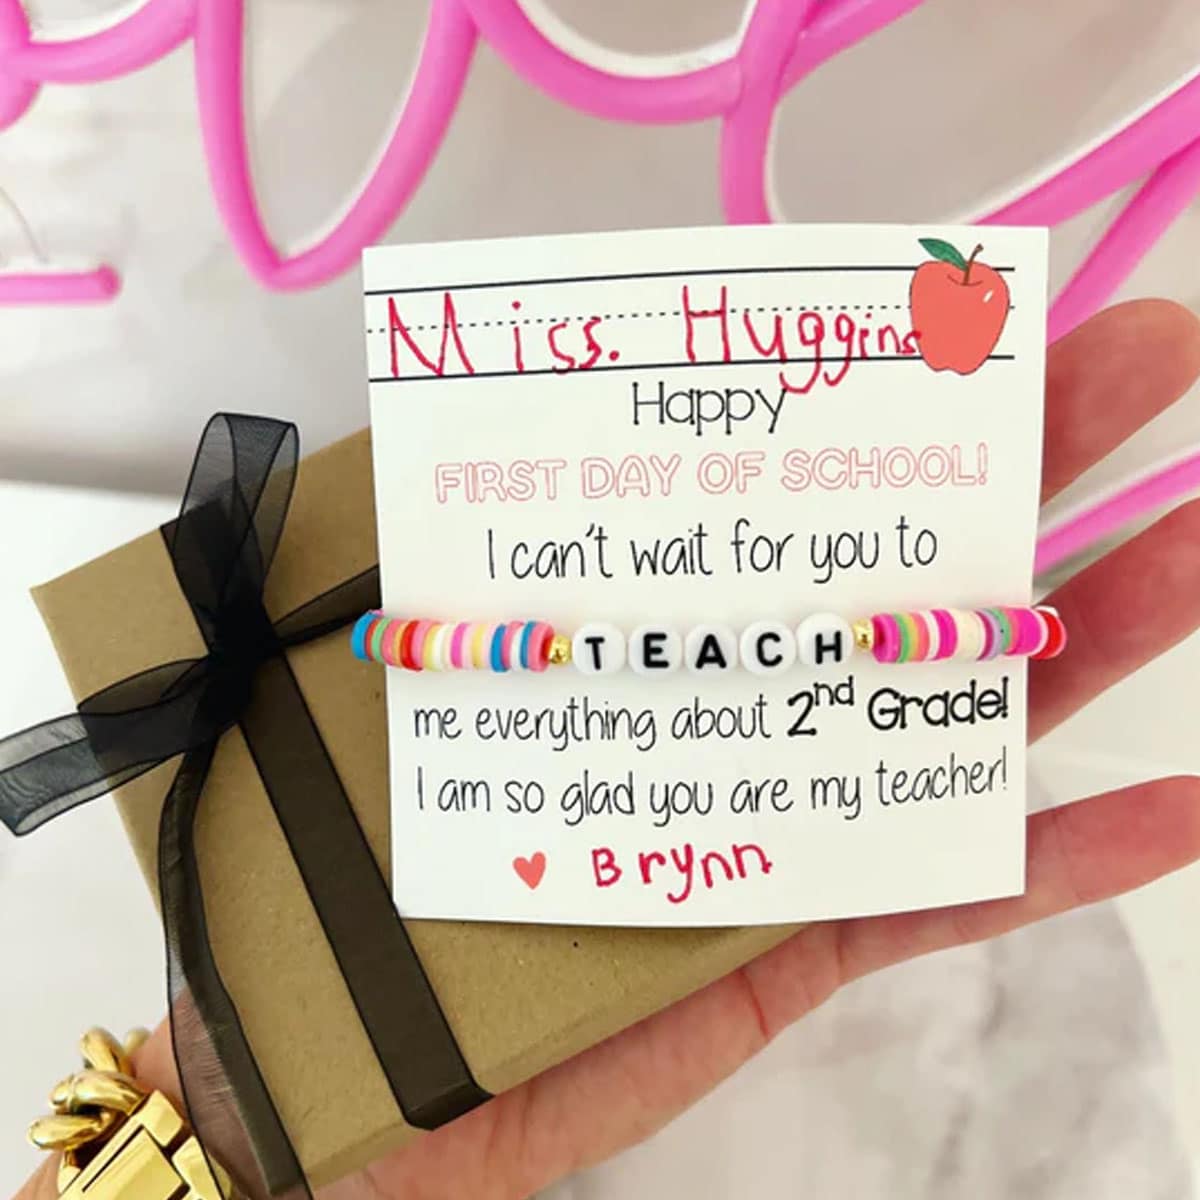 Miss. Huggins
Happy
FIRST DAY OF SCHOOL!
I can't wait for you to
TEACH
me everything about 2nd Grade!
I am so glad you are my teacher!
Brynn